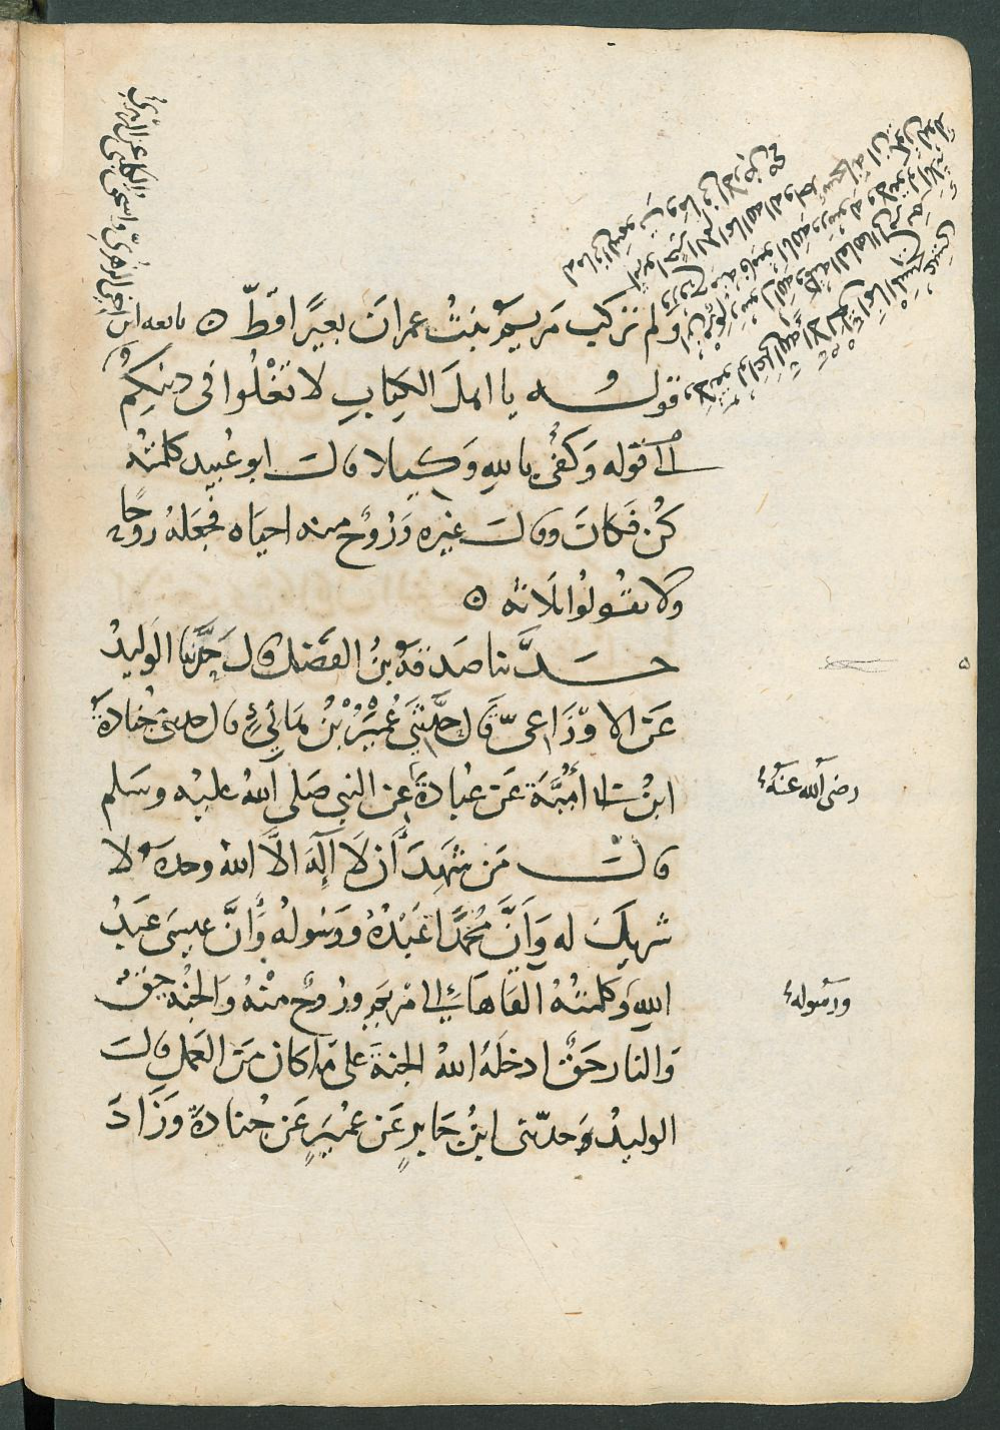 ولم تركب مريم بنت عمران بعيرًا قطّ ٥ تابعه ابن
اخي الزهريّ واسحق الكلبي عن الزهري
قوله يا اهل الكتاب لا تغلوا في دينكم
الى قوله وكفى بالله وكيلا قال ابو عبيد كلمته
كن فكان وقال غيره وروح منه احياه فجعله روحًا
ولا تقولوا ثلاثه ٥
حدّثنا صدقة بن الفضل قال حدّثنا الوليد
عن الاوزاعيّ قال حدّثني عمير بن هانئ قال حدثني جنادة
ابن ابي أميّة عن عبادة عن النبي صلى الله عليه وسلم
رضى الله عنه
قال من شهد أن لا إله الّا الله وحده لا
شريك له وأنّ محمّدًا عبده ورسوله وأنّ عيسى عبد
الله وكلمته القاها إلى مريم وروح منه والجنة حقّ
ورسوله
والنار حقّ ادخله الله الجنة على ما كان من العمل قال
الوليد وحدّثني ابن جابر عن عمير عن جنادة وزاد